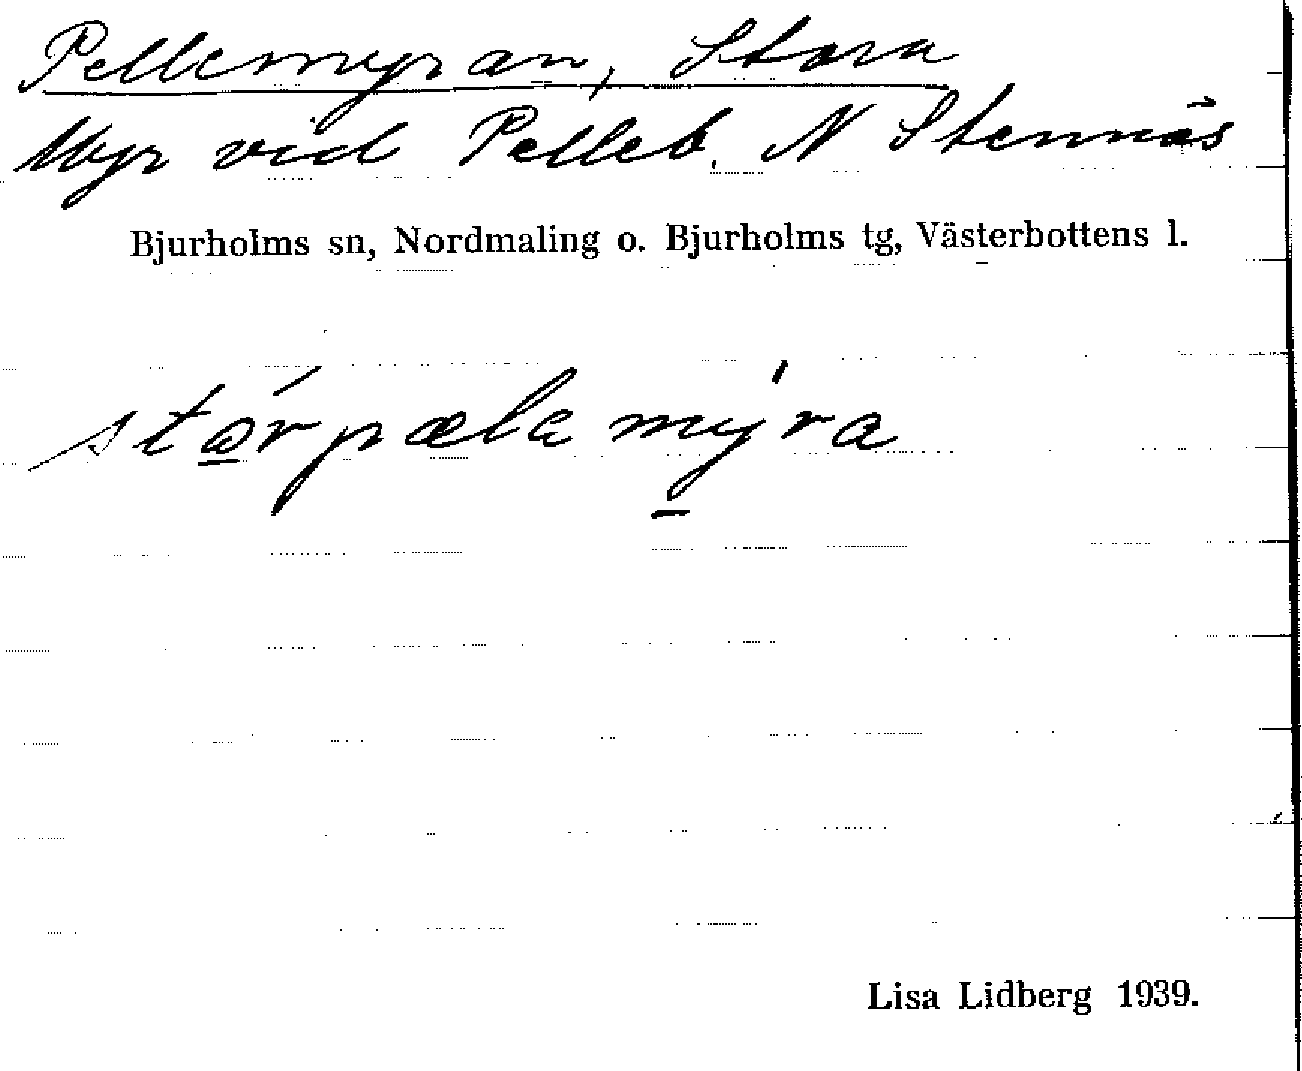 Pellemyran, Stora
Myr vid Relleb. N Stennäs
Bjurholms sn, Nordmaling o. Bjurholms tg, Västerbottens l.
stórpælamýra
Lisa Lidberg 1939.